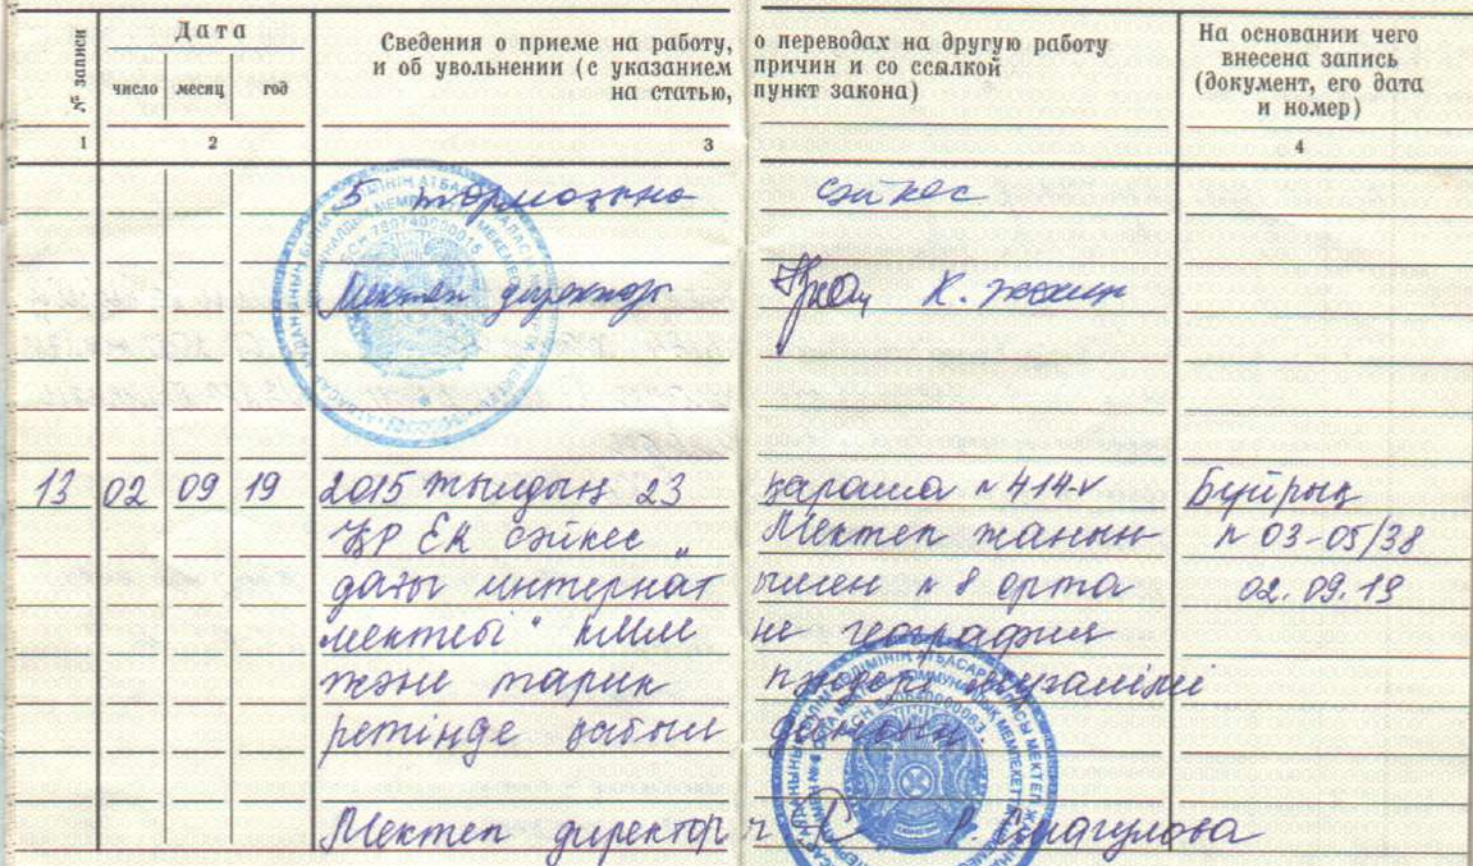 № записи
Дата
число месяц год
Сведения о приеме на работу, о переводах на другую работу
и об увольнении (с указанием причин и со ссылкой
на статью, пункт закона)
На основании чего
внесена запись
(документ, его дата
и номер)
1 2 3 4
5 тормозына сәйкес
Мектеп директоры
13 02 09 19 2015 жылдың 23 қараша № 414-V Бұйрық
ҚР ЕК сәйкес „Мектеп жанын- № 03-05/38
дағы интернат ымен № 8 орта 02.09.19
мектебі“ КММ не география
және тарих пәндері мұғалімі
ретінде қабыл
Мектеп директоры Р. Смагулова